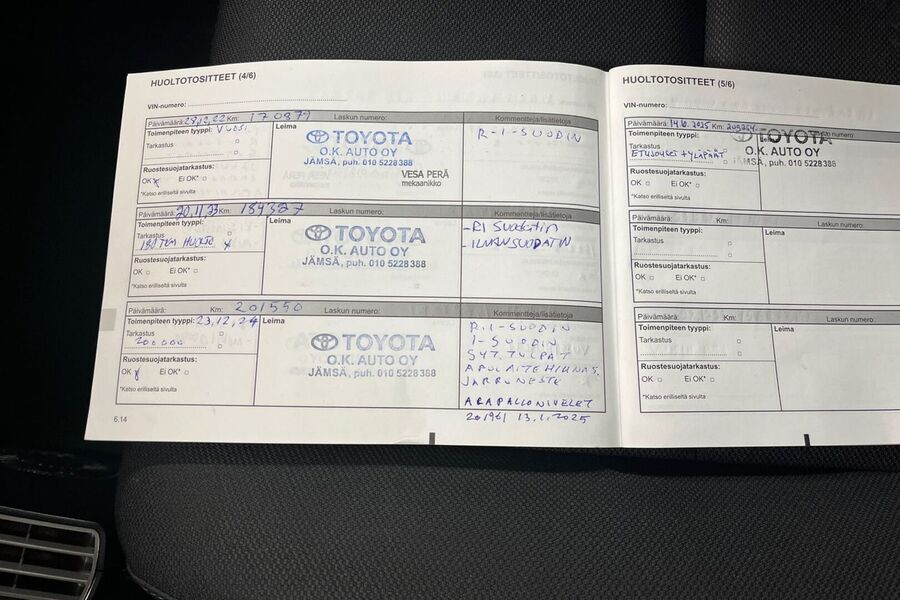 HUOLTOTOSITTEET (4/6)
VIN-numero:
Päivämäärä: 28.12.22 Km: 170877 Laskun numero: Kommentteja/lisätietoja
Toimenpiteen tyyppi: VUOSI Leima R-I-SUODIN
Tarkastus
TOYOTA
O.K. AUTO OY
JÄMSÄ, puh. 010 5228388
Ruostesuojatarkastus:
OK Ei OK*
VESA PERÄ
mekaanikko
*Katso erilliseltä sivulta
Päivämäärä: 20.11.23 Km: 184327 Laskun numero: Kommentteja/lisätietoja
Toimenpiteen tyyppi: Leima -RI Suodatin
Tarkastus -ILMANSUODATIN
180 TKM HUOLTO x
TOYOTA
O.K. AUTO OY
JÄMSÄ, puh. 010 5228388
Ruostesuojatarkastus:
OK Ei OK*
*Katso erilliseltä sivulta
Päivämäärä: Km: 201550 Laskun numero: Kommentteja/lisätietoja
Toimenpiteen tyyppi: 23.12.24 Leima R.I-SUODIN
Tarkastus I-SUODIN
200000 SYT.TULPAT
TOYOTA APULAITEHIHNAS.
O.K. AUTO OY JARRUNESTE
JÄMSÄ, puh. 010 5228388
Ruostesuojatarkastus:
OK Ei OK*
*Katso erilliseltä sivulta
ALAPALLONIVELET
13.1.2025
6.14
HUOLTOTOSITTEET (5/6)
VIN-numero:
Päivämäärä: 14.10.2025 Km: Laskun numero:
Toimenpiteen tyyppi:
Tarkastus
ETUJOUSET + YLÄPÄÄT
TOYOTA
O.K. AUTO OY
JÄMSÄ, puh. 010 5228388
Ruostesuojatarkastus:
OK Ei OK*
*Katso erilliseltä sivulta
Päivämäärä: Km: Laskun numero:
Toimenpiteen tyyppi: Leima
Tarkastus
Ruostesuojatarkastus:
OK Ei OK*
*Katso erilliseltä sivulta
Päivämäärä: Km: Laskun numero:
Toimenpiteen tyyppi: Leima
Tarkastus
Ruostesuojatarkastus:
OK Ei OK*
*Katso erilliseltä sivulta